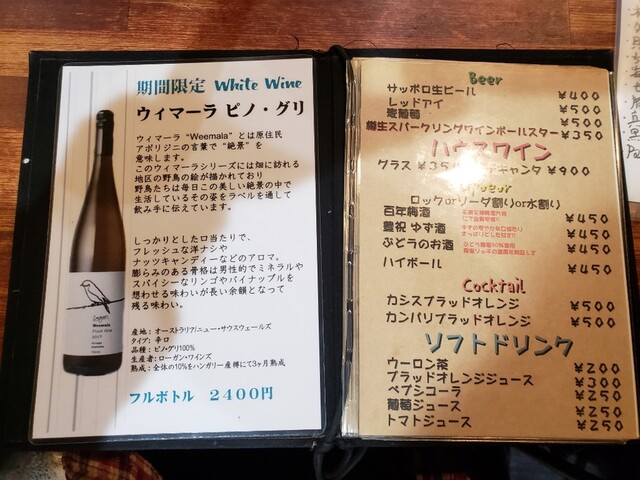 期間限定 White Wine
ウィマーラ ピノ・グリ
ウィマーラ "Weemala" とは原住民
アボリジニの言葉で"絶景"を
意味します。
このウィマーラシリーズには畑に訪れる
地区の野鳥の絵が描かれており
野鳥たちは毎日この美しい絶景の中で
生活しているその姿をラベルを通して
飲み手に伝えています。
しっかりとした口当たりで、
フレッシュな洋ナシや
ナッツキャンディーなどのアロマ。
膨らみのある骨格は男性的でミネラルや
スパイシーなリンゴやパイナップルを
想わせる味わいが長い余韻となって
残る味わい。
産地：オーストラリア/ニュー・サウスウェールズ
タイプ：辛口
品種：ピノ・グリ100%
生産者：ローガン・ワインズ
熟成：全体の10%をハンガリー産樽にて3ヶ月熟成
フルボトル 2400円
Logan
Weemala
Beer
サッポロ生ビール ¥400
レッドアイ ¥500
麦葡萄 ¥500
樽生スパークリングワインポールスター ¥350
ハウスワイン
グラス ¥350 デキャンタ ¥900
ロックorソーダ割りor水割り
百年梅酒 ¥450
豊祝 ゆず酒 ¥450
ぶどうのお酒 ¥450
ハイボール ¥450
Cocktail
カシスブラッドオレンジ ¥500
カンパリブラッドオレンジ ¥500
ソフトドリンク
ウーロン茶 ¥200
ブラッドオレンジジュース ¥300
ペプシコーラ ¥250
葡萄ジュース ¥250
トマトジュース ¥250